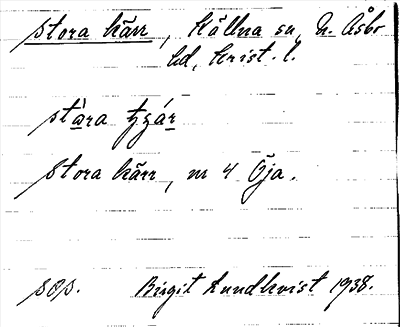 Stora kärr, Källna sn, N. Åsbo
hd, Krist. l.
stàra tɟɟár
Stora kärr, nr 4 Öja.
søs. Birgit Lundkvist 1938.